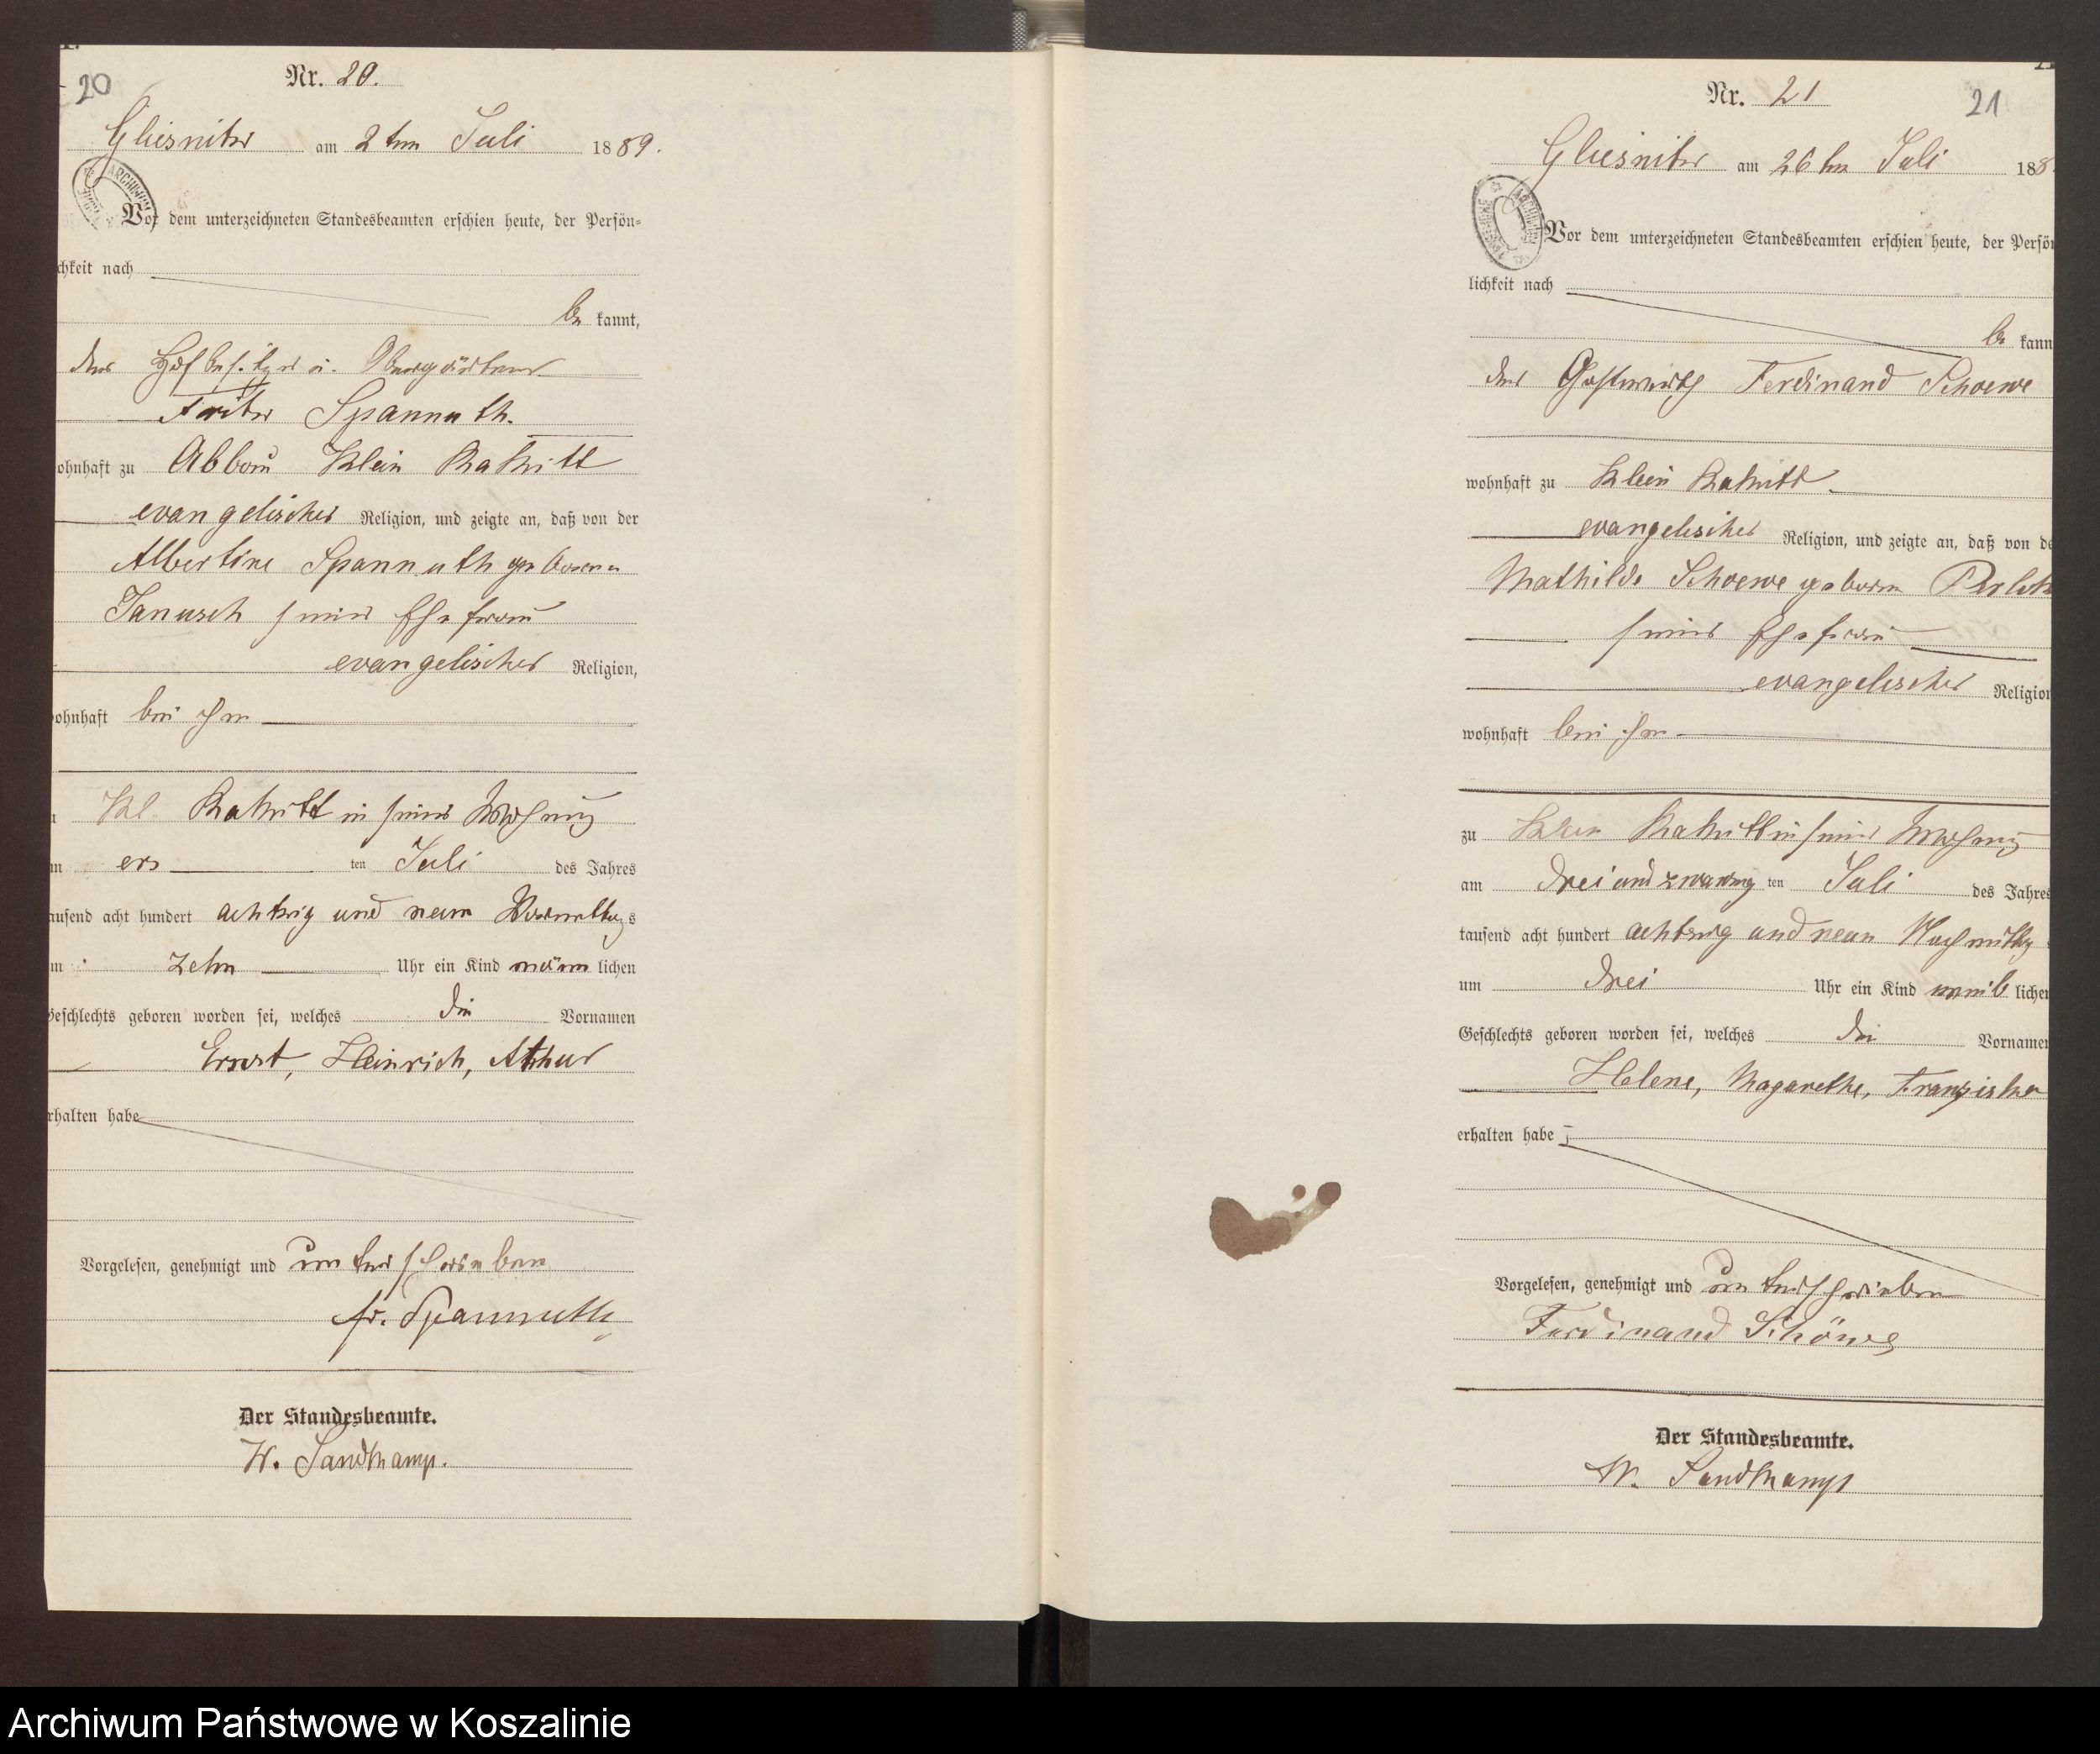 20
Nr. 20.
Gliesnitz am 2ten Juli 1889.
Vor dem unterzeichneten Standesbeamten erschien heute, der Persön-
chkeit nach
be kannt,
der Hofbesitzer u.
Fritz Spannuth.
ohnhaft zu Abbau Klein Rakitt
evangelischer Religion, und zeigte an, daß von der
Albertine Spannuth geborene
Janusch seiner Ehefrau
evangelischer Religion,
ohnhaft bei ihm
Kl. Rakitt in seiner Wohnung
m ers ten Juli des Jahres
ausend acht hundert achtzig und neun Vormittags
m zehn Uhr ein Kind männ lichen
Geschlechts geboren worden sei, welches die Vornamen
Ernst, Heinrich, Athur
rhalten habe
Vorgelesen, genehmigt und unterschrieben
Fr. Spannuth
Der Standesbeamte.
W. Sandkamp.
Nr. 21
21
Gliesnitz am 26ten Juli 188
Vor dem unterzeichneten Standesbeamten erschien heute, der Persön
lichkeit nach
be kann
der Gastwirth Ferdinand Schoewe
wohnhaft zu Klein Rakitt
evangelischer Religion, und zeigte an, daß von de
Mathilde Schoewe geboren
seiner Ehefrau
evangelischer Religion
wohnhaft bei ihm
zu Klein Rakitt in seiner Wohnung
am drei und zwanzig ten Juli des Jahres
tausend acht hundert achtzig und neun Nachmittags
um drei Uhr ein Kind weib lichen
Geschlechts geboren worden sei, welches die Vornamen
Helene, Magarethe, Franziska
erhalten habe
Vorgelesen, genehmigt und unterschrieben
Ferdinand Schöwe
Der Standesbeamte.
W. Sandkamp
Archiwum Państwowe w Koszalinie